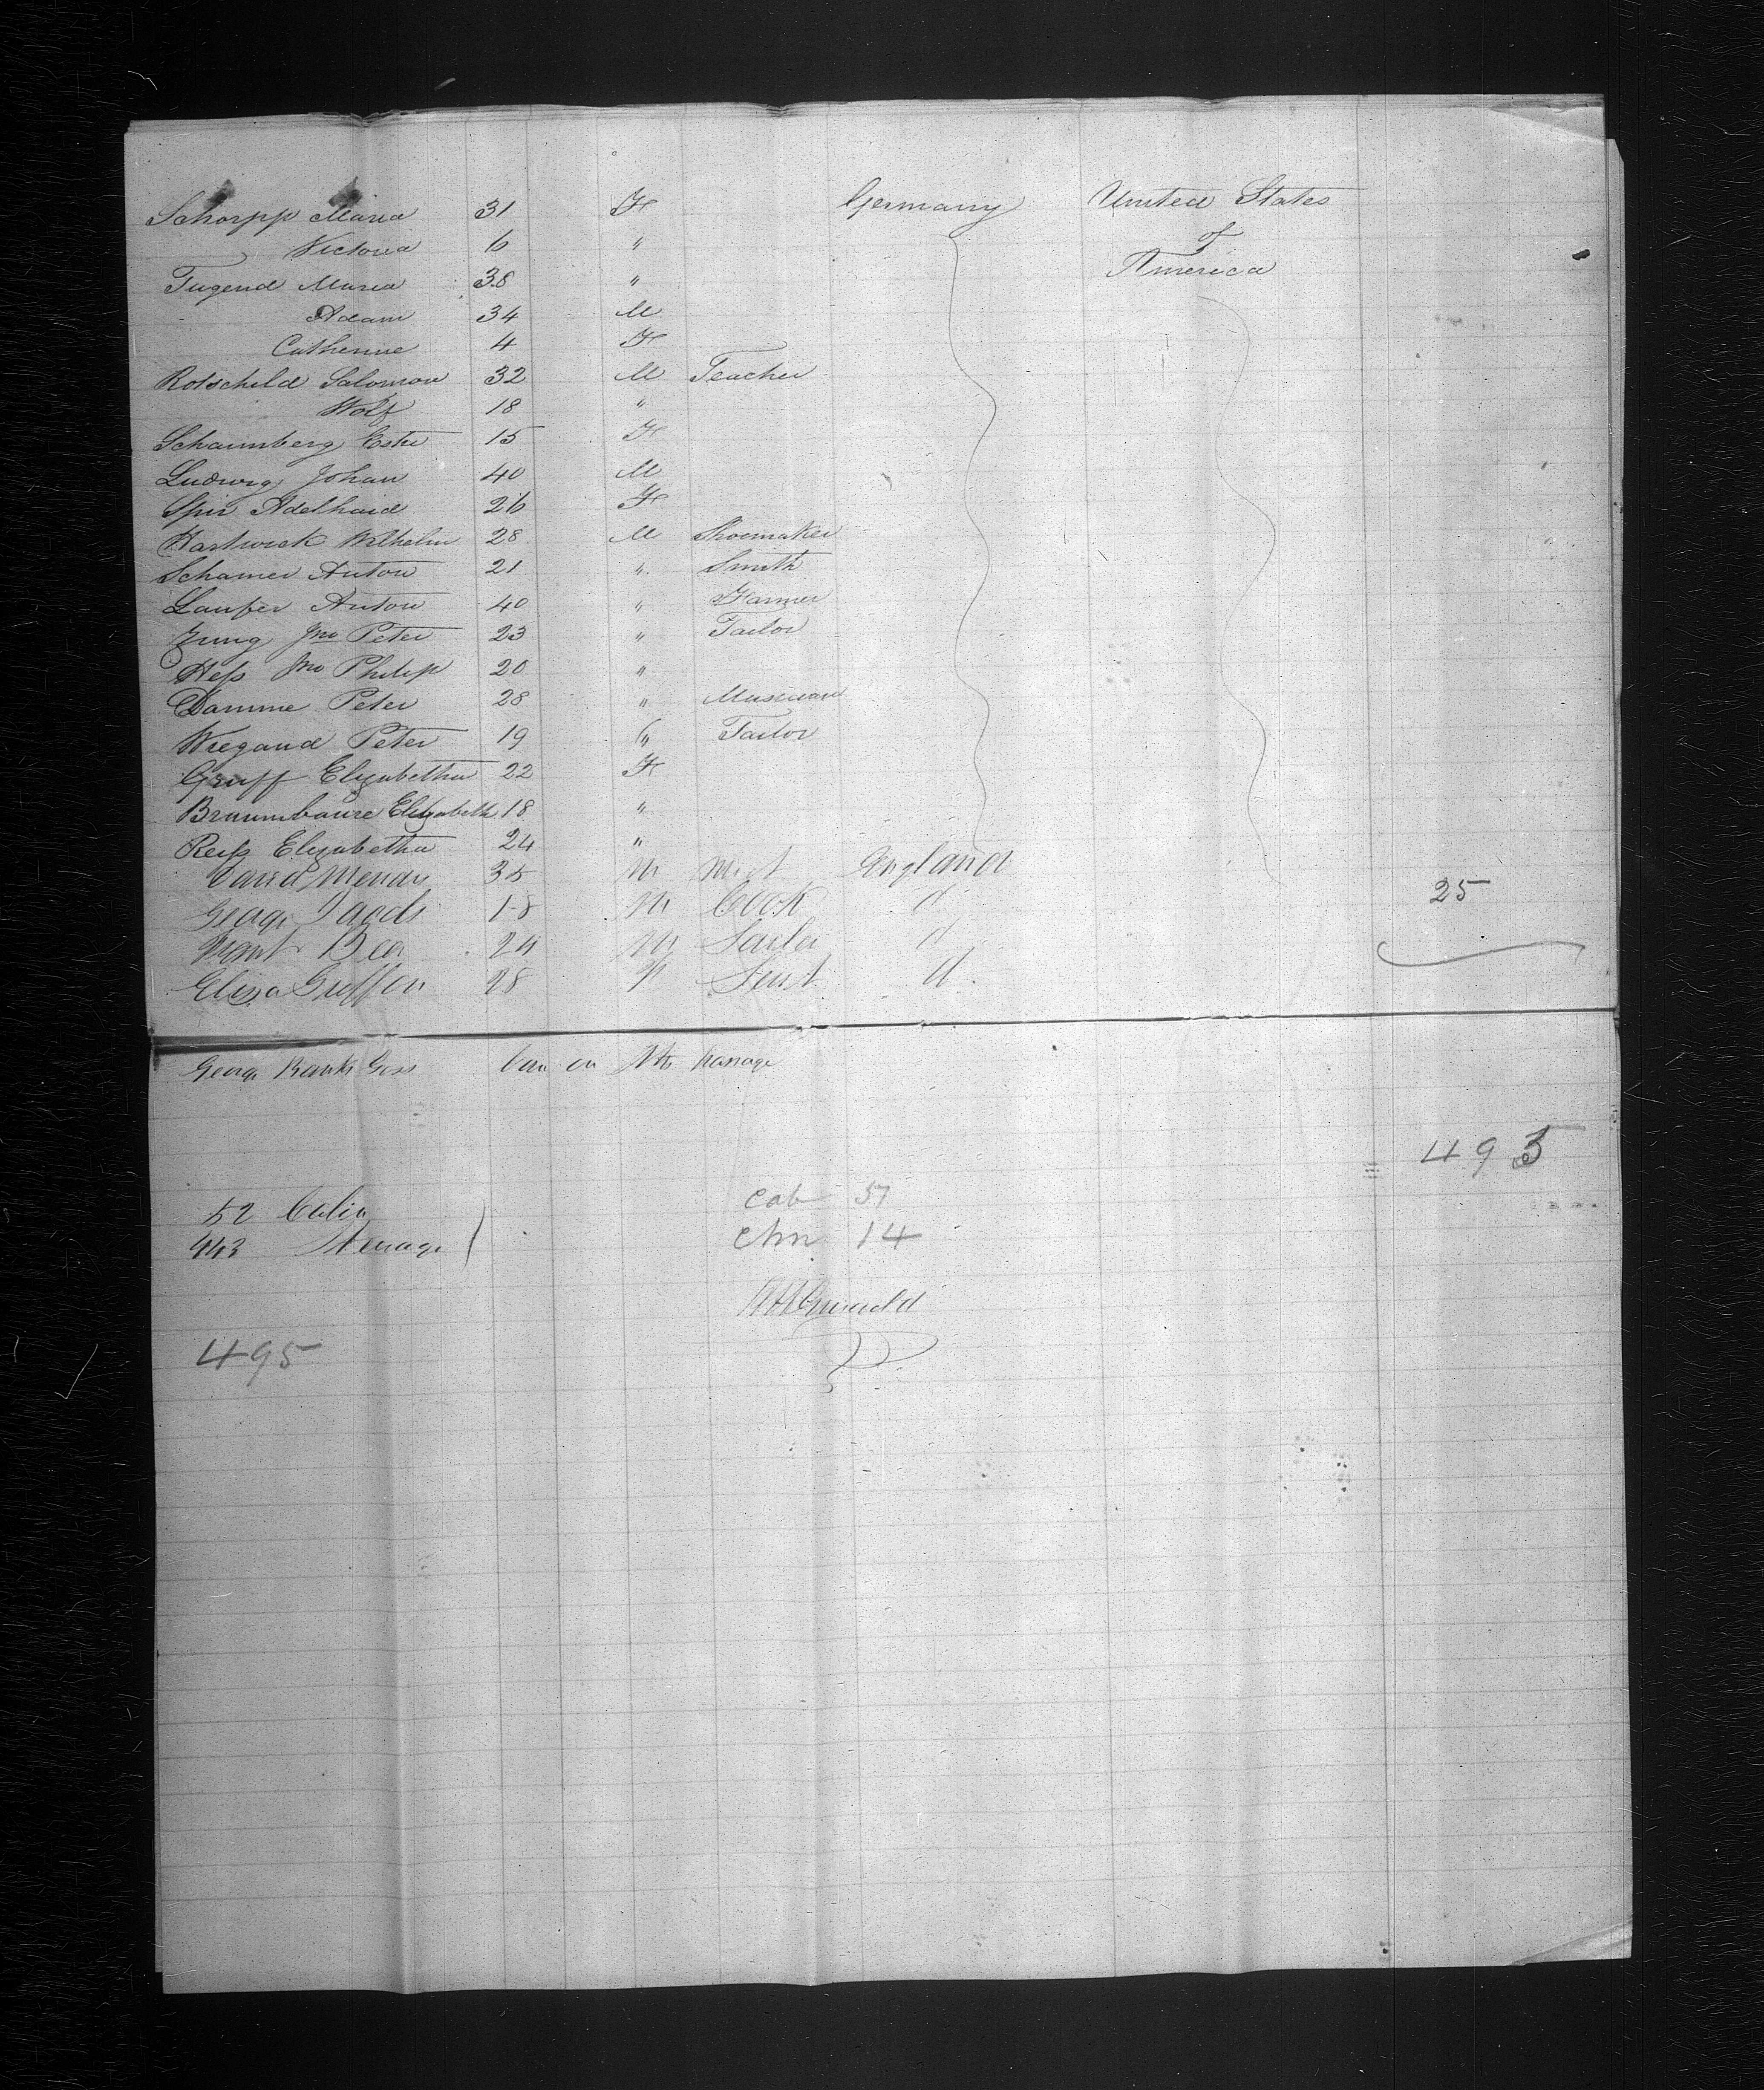 Schorpp Maria 31 F Germany United States
Victoria 6 " of
Tugend Maria 38 " America
Adam 34 M
Catherine 4 F
Rotschild Salomon 32 M Teacher
Wolf 18 "
Schaumberg Ester 15 F
Ludwig Johan 40 M
Spir Adelhaid 26 F
Hartwick Wilhelm 28 M Shoemaker
Schamer Anton 21 " Smith
Laufer Anton 40 " Farmer
Zung Jno Peter 23 " Tailor
Hess Jno Philip 20 "
Damme Peter 28 " Musician
Wiegand Peter 19 " Tailor
Gruff Elizabetha 22 F
Braumboure Elizabeth 18 "
Reiss Elizabetha 24 "
David 35 M England
George 18 M Cook d 25
24 M d
Eliza Griffen 28 F d
George Banks on passage
495
52 Cabin cab 37
443 Steerage chn 14
495